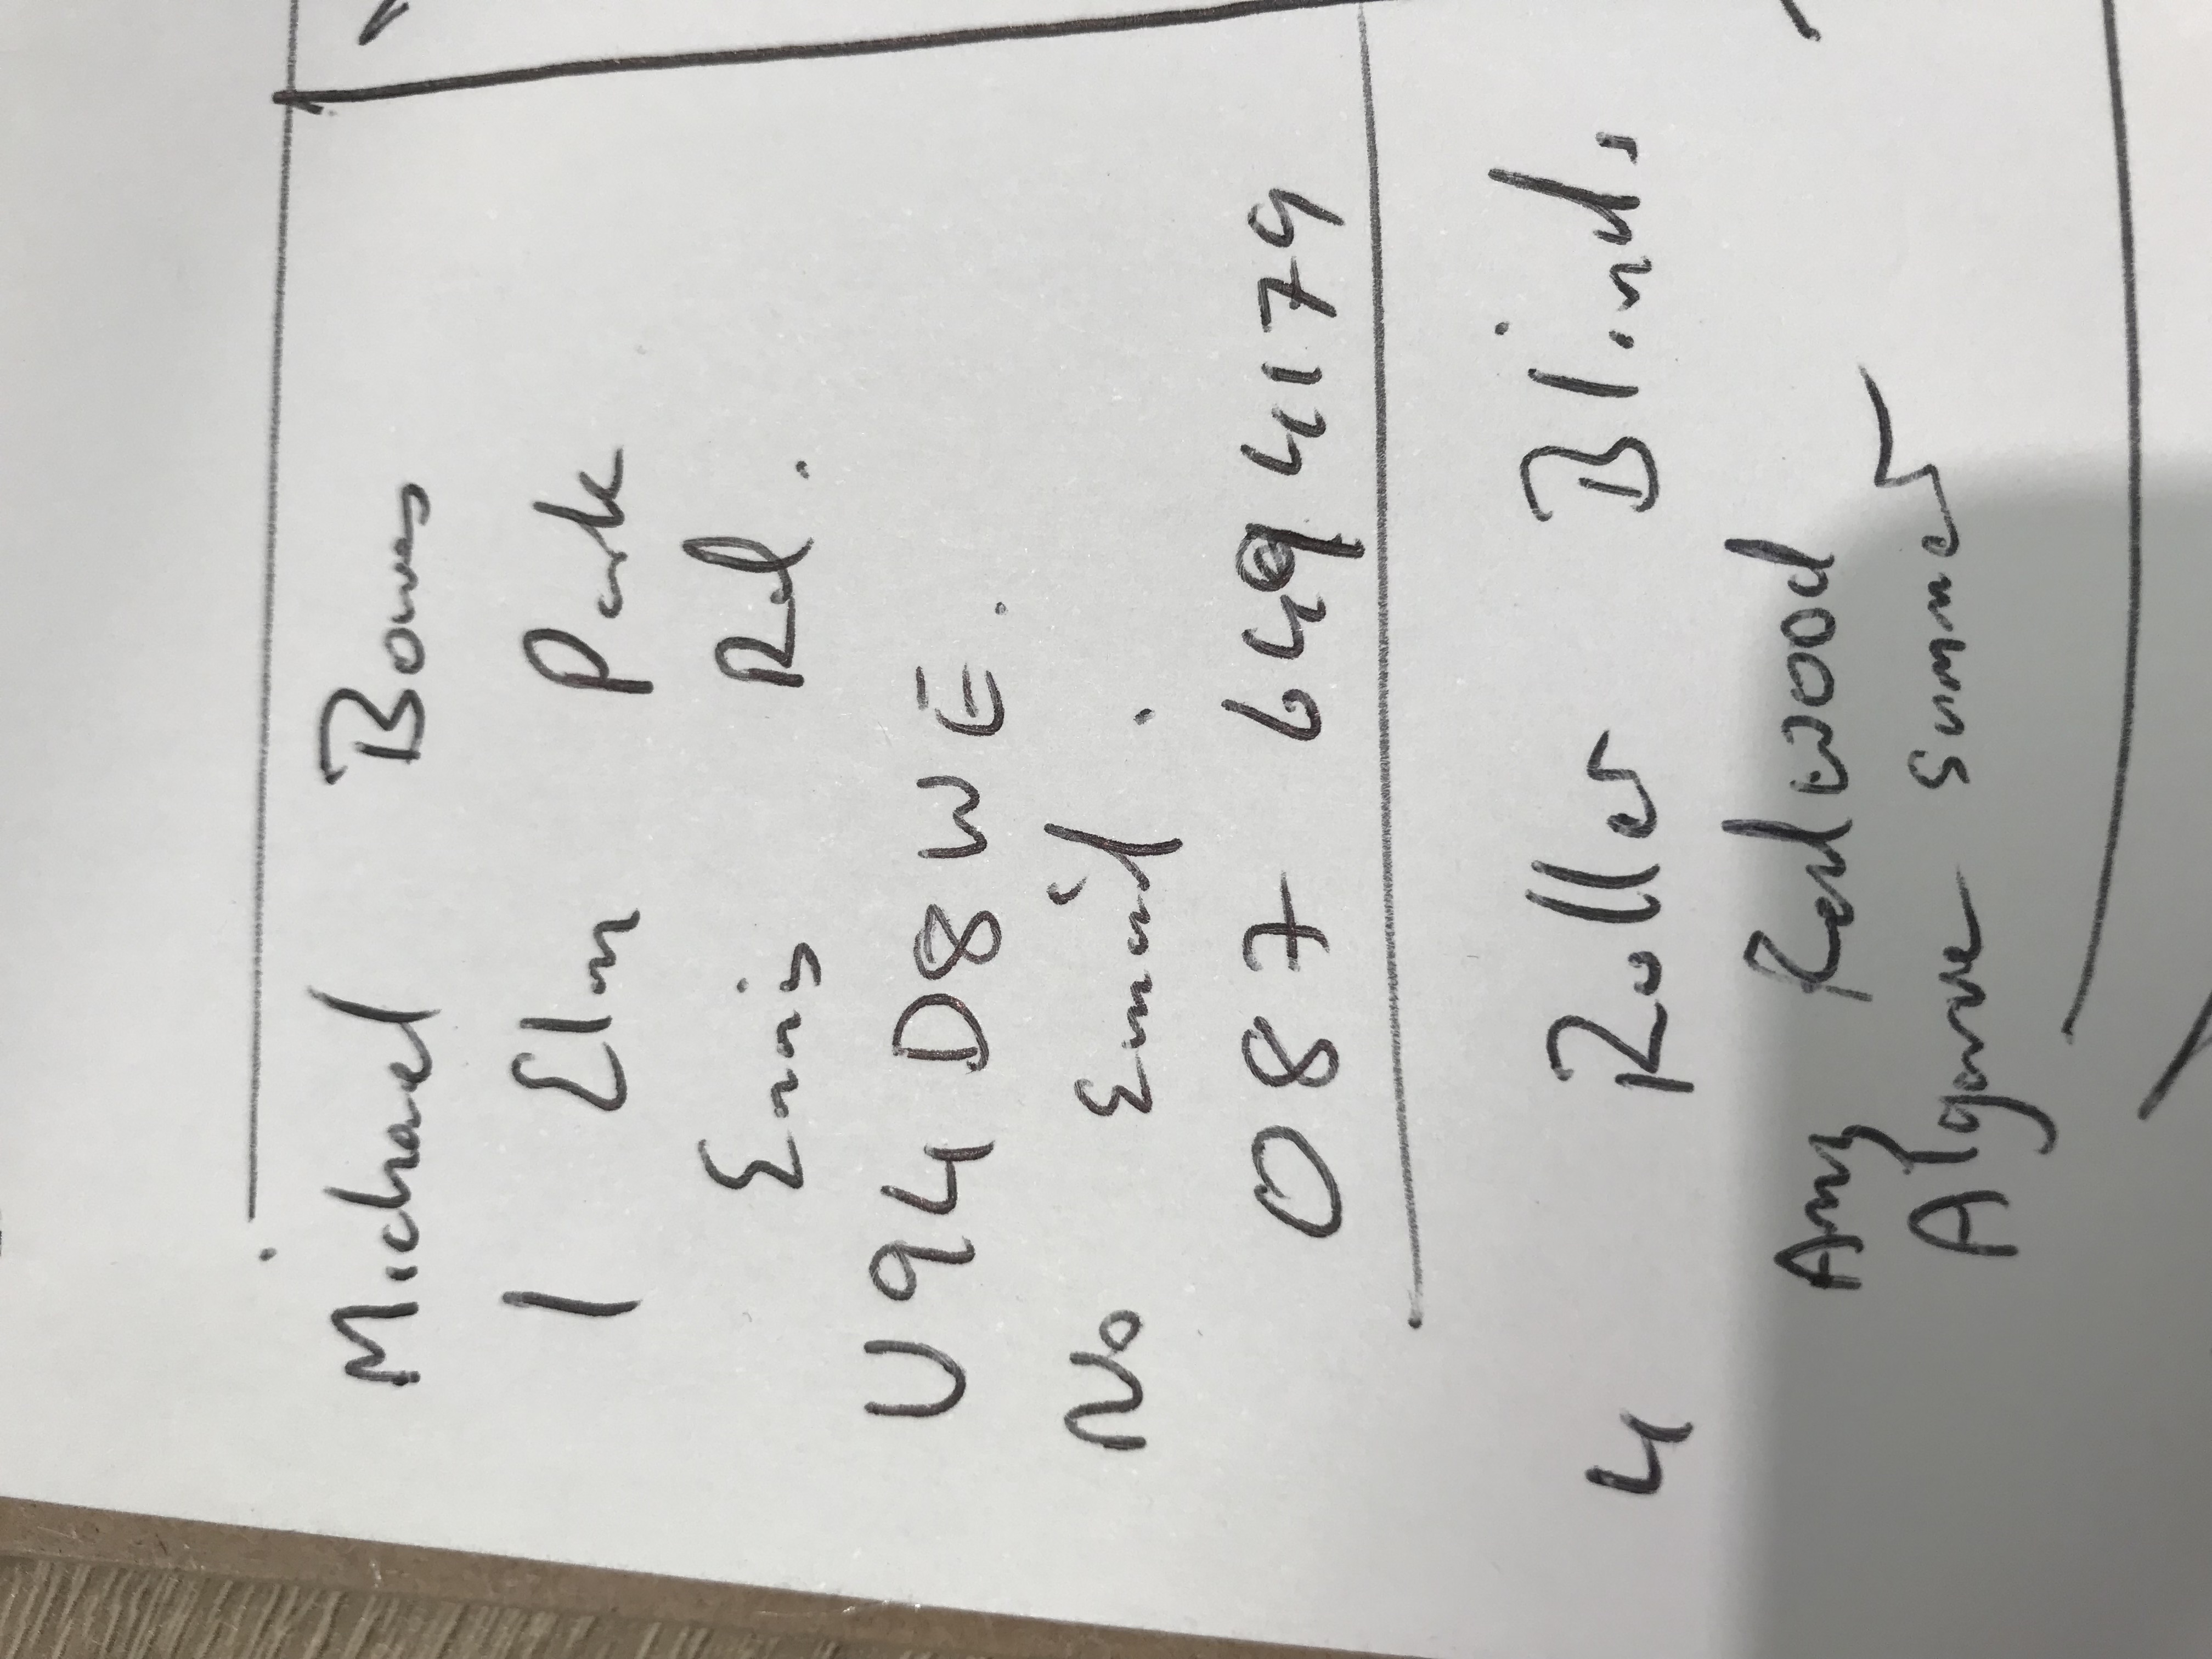 Michael Bowes
1 Elm Park
Ennis Rd.
V94 D8WE.
No Email.
087 6494179
4 Roller Blinds
Amy Redwood
Algarve Summer